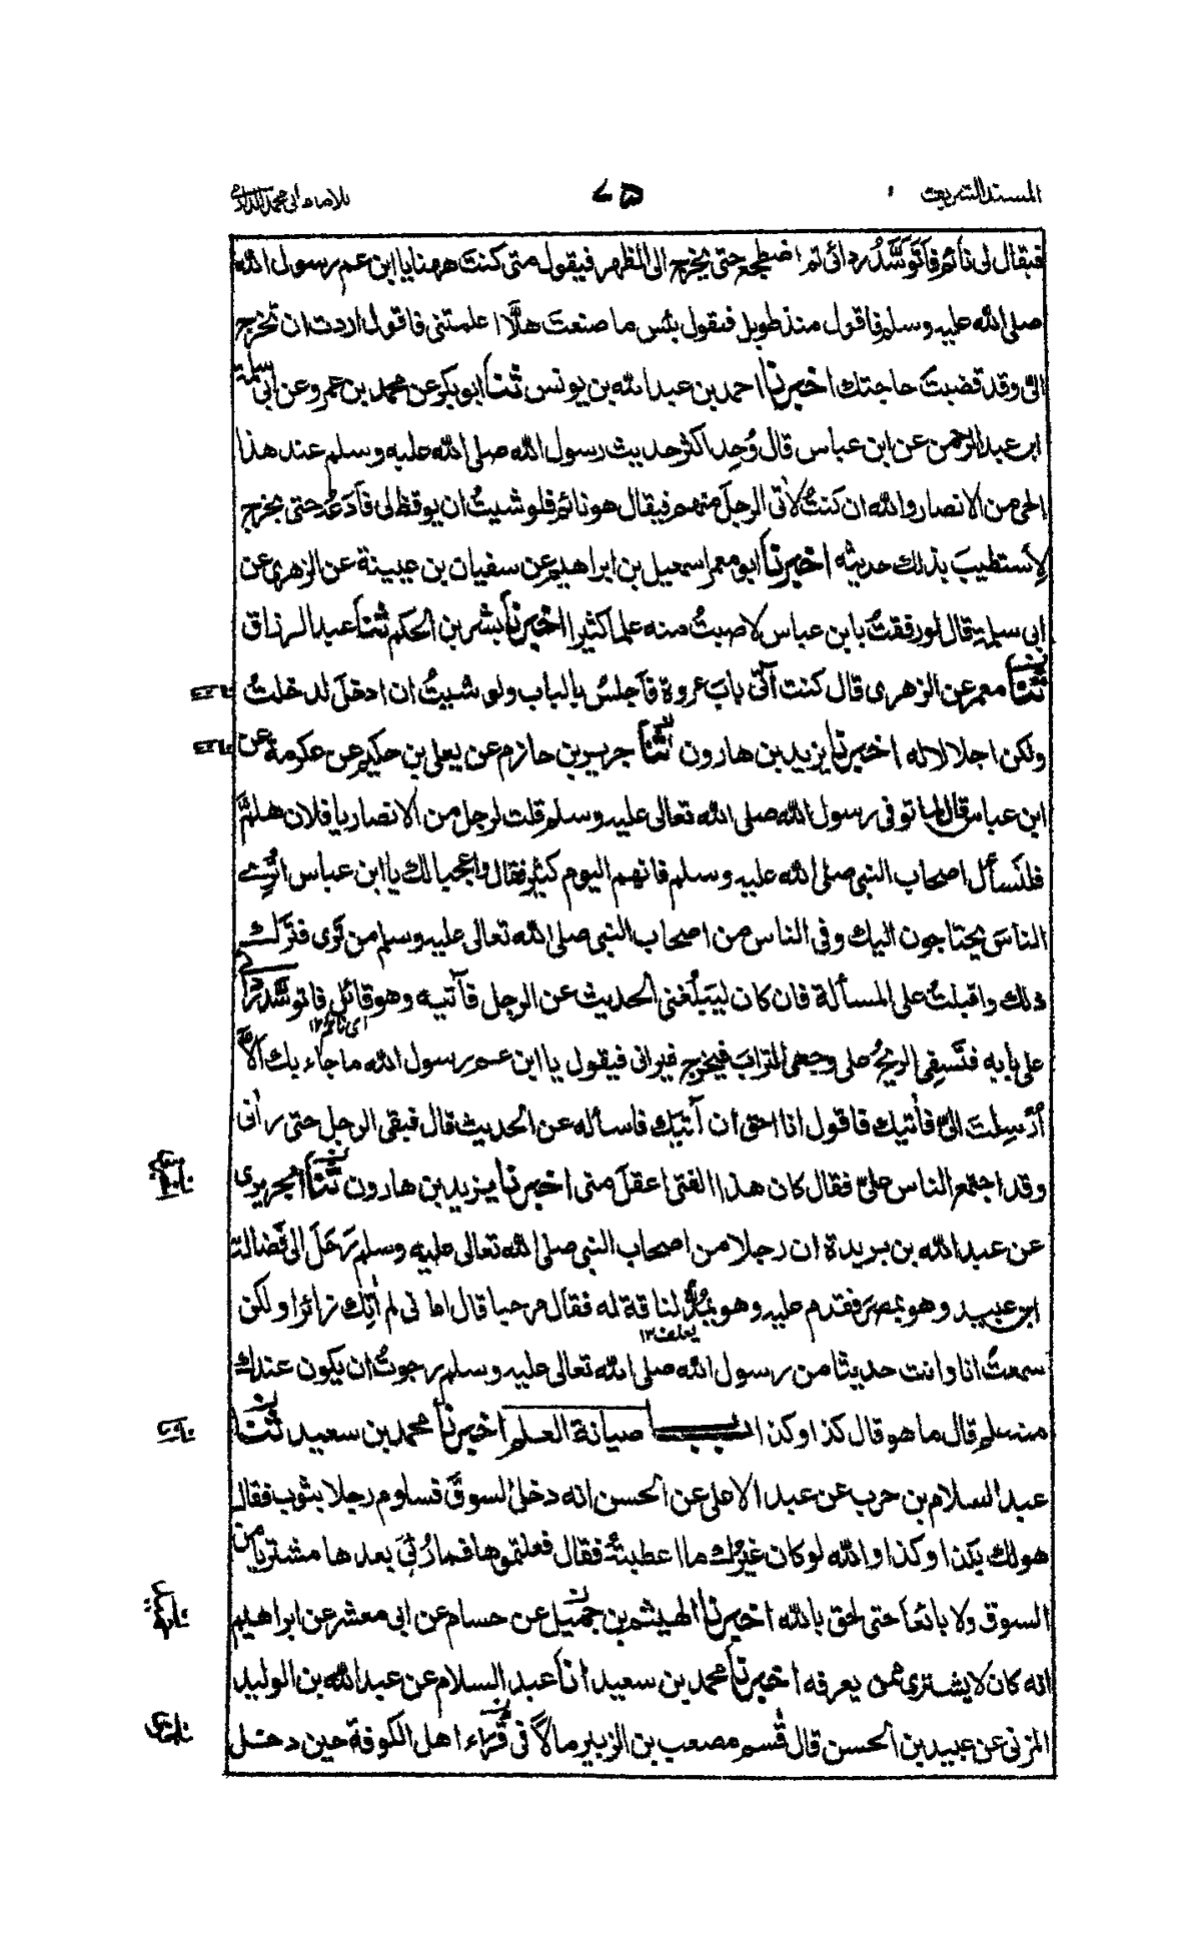 المسند الشريف
٧٥
للامام ابی محمد الدارمی
فيقال لی نائم فأتوسَّدُ ردائی ثم اضطجع حتى يخرج الى الظهر فيقول متى كنت ههنا يا ابن عم رسول الله
صلى الله عليه وسلم فاقول منذ طويل فيقول بئس ما صنعتَ هلَّا اعلمتنی فاقول اردت ان تخرج
الیّ وقد قضيتَ حاجتك اخبرنا احمد بن عبد الله بن يونس ثنا ابو بكر عن محمد بن عمرو عن ابی سلمة
ابن عبد الرحمن عن ابن عباس قال وُجِد اكثر حديث رسول الله صلى الله عليه وسلم عند هذا
الحی من الانصار والله ان كنتُ لأتی الرجلَ منهم فيقال هو نائم فلو شيتُ ان يوقظ لی فأدَعُه حتى يخرج
لأستطيبَ بذلك حديثه اخبرنا ابو معمر اسمعيل بن ابراهيم عن سفيان بن عيينة عن الزهری عن
ابی سلمة قال لو رفقتُ بابن عباس لاصبتُ منه علما كثيرا اخبرنا بشر بن الحكم ثنا عبد الرزاق
ثنا معمر عن الزهری قال كنت آتی بابَ عروة فأجلسُ بالباب ولو شيتُ ان ادخلَ لدخلتُ
ولكن اجلالا له اخبرنا يزيد بن هارون ثنا جرير بن حازم عن يعلى بن حكيم عن عكرمة عن
ابن عباس قال لما توفی رسول الله صلى الله تعالى عليه وسلم قلت لرجل من الانصار يا فلان هلمَّ
فلنسأل اصحاب النبی صلى الله عليه وسلم فانهم اليوم كثير فقال واعجبا لك يا ابن عباس اتُرٰے
الناسَ يحتاجون اليك وفی الناس من اصحاب النبی صلى الله تعالى عليه وسلم من تَرٰى فترك
ذلك واقبلتُ على المسألة فان كان ليبلُغنی الحديث عن الرجل فآتيه وهو قائل فاتوسَّدُ ردائی
ای نائم ١٢
على بابه فتَسفِی الريحُ على وجهی الترابَ فيخرج فيرانی فيقول يا ابن عم رسول الله ما جاء بك ألّا
أرسلتَ الیَّ فأتيك فاقول انا احق أن آتيَك فاسأله عن الحديث قال فبقی الرجل حتى رأنی
وقد اجتمع الناس علیّ فقال كان هذا الفتى اعقلَ منی اخبرنا يزيد بن هارون ثنا الجريری
عن عبد الله بن بريدة ان رجلا من اصحاب النبی صلى الله تعالى عليه وسلم رَحَلَ الى فَضالة
ابن عبيد وهو بمصر فقدم عليه وهو يمُدُّ لناقة له فقال مرحبا قال اما انی لم أتِك زائرا ولكن
يعلف ١٢
سمعتُ انا وانت حديثا من رسول الله صلى الله تعالى عليه وسلم رجوتُ ان يكون عندك
منه علم قال ما هو قال كذا وكذا باب صيانة العلم اخبرنا محمد بن سعيد ثنا
عبد السلام بن حرب عن عبد الاعلى عن الحسن انه دخل السوقَ فساوم رجلا بثوب فقال
هو لك بكذا وكذا والله لو كان غيرُك ما اعطيتُه فقال فعلتموها فما رُئیَ بعدها مشتريا من
السوق ولا بائعا حتى لحق بالله اخبرنا الهيثم بن جميل عن حسام عن ابی معشر عن ابراهيم
انه كان لا يشتری ممن يعرفه اخبرنا محمد بن سعيد انا عبد السلام عن عبد الله بن الوليد
المزنی عن عبيد بن الحسن قال قَسم مصعب بن الزبير مالًا فی قُرّاء اهل الكوفة حين دخل